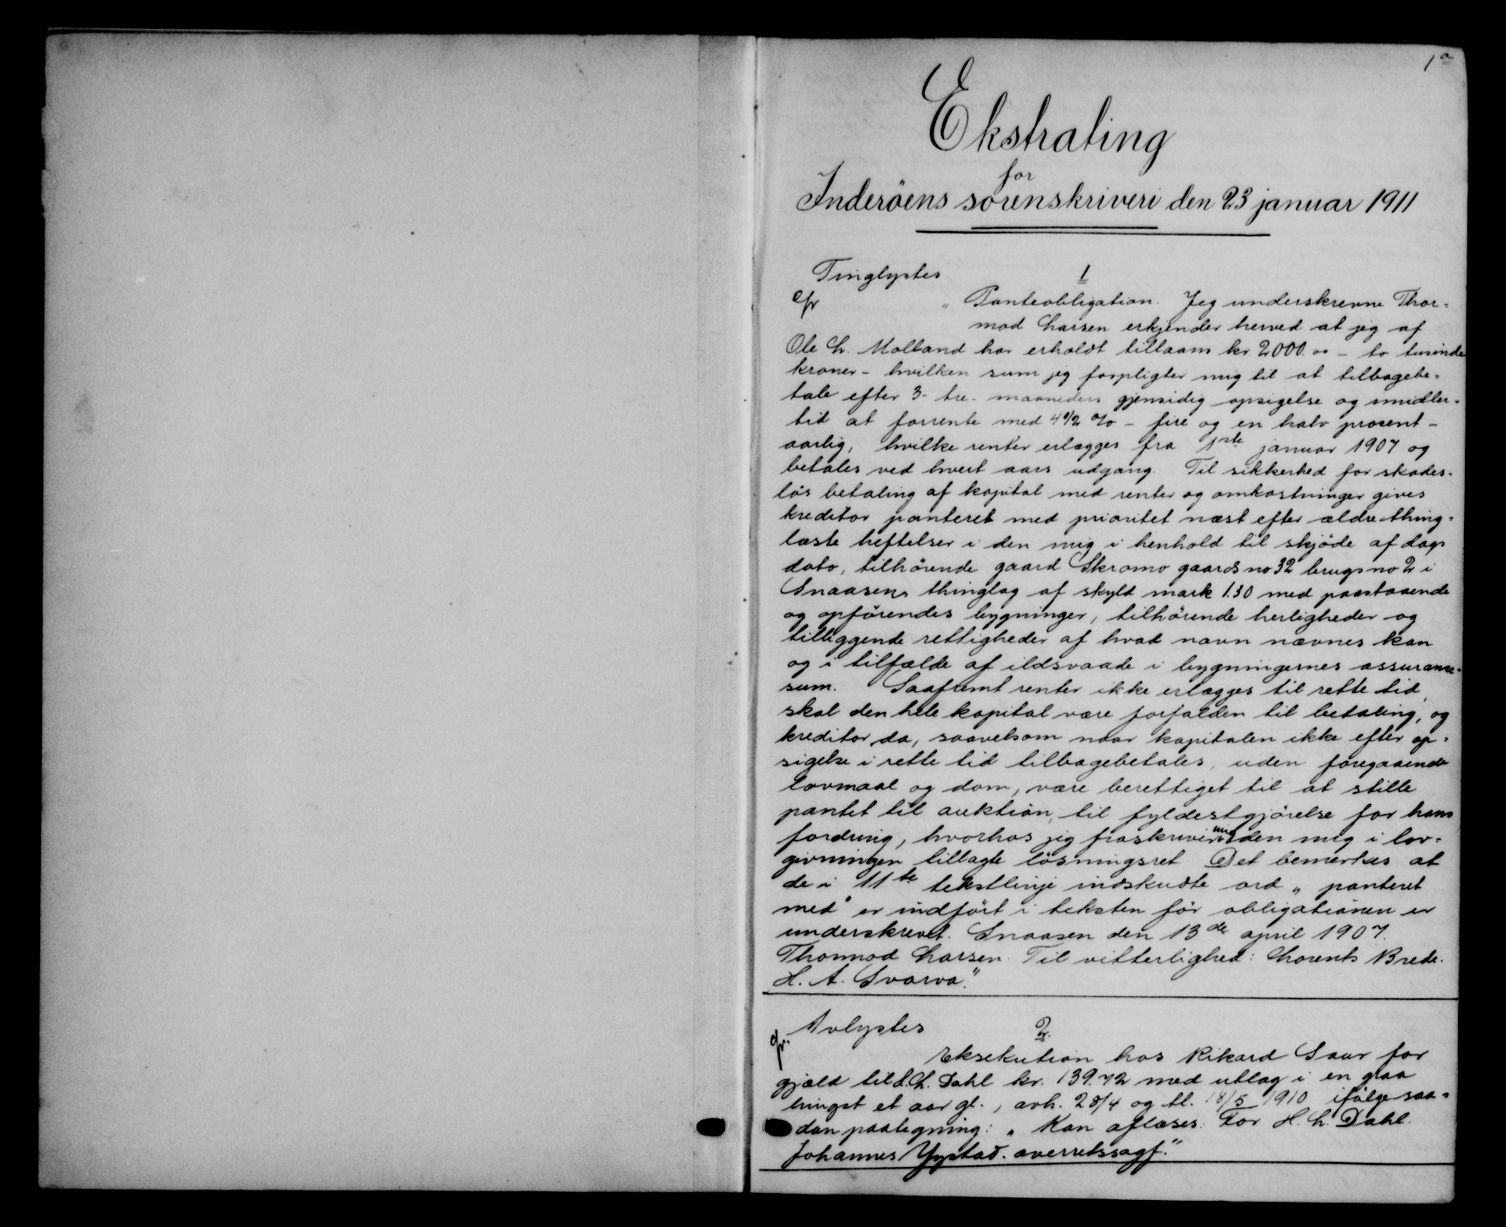 1a
Ekstrating
for
Inderöens sorenskriveri den 23 januar 1911
Tinglystes 1
"Panteobligation. Jeg underskrevne Thor-
mod Larsen erkjender herved at jeg af
Ole L. Molland har erholdt tillaans kr 2000.00 - to tusinde
kroner - hvilken sum jeg forpligter mig til at tilbagebe-
tale efter 3- tre- maaneders gjensidig opsigelse og imidler-
tid at forrente med 4 1/2 % - fire og en halv procent -
aarlig, hvilke renter erlægges fra 1ste januar 1907 og
betales ved hvert aars udgang. Til sikkerhed for skades-
lös betaling af kapital med renter og omkostninger gives
kreditor panteret med prioritet næst efter ældre thing-
læste heftelser i den mig i henhold til skjöde af dags
dato, tilhörende gaard Skromo gaards no 32 brugs no 2 i
Snaasens thinglag af skyld mark 1.30 med paastaaende
og opförendes bygninger, tilhörende herligheder og
tilliggende rettigheder af hvad navn nævnes kan
og i tilfælde af ildsvaade i bygningernes assurance-
sum. Saafremt renter ikke erlægges til rette tid,
skal den hele kapital være forfalden til betaling, og
kreditor da, saavelsom naar kapitalen ikke efter op-
sigelse i rette tid tilbagebetales, uden foregaaende
lovmaal og dom, være berettiget til at stille
pantet til auktion, til fyldestgjörelse for hans
fordring, hvorhos jeg fraskriver mig den mig i lov-
givningen tillagte lösningsret. Det bemerkes at
de i 11te tekstlinje indskudte ord "panteret
med" er indfört i teksten för obligationen er
underskrevet. Snaasen den 13de april 1907.
Thormod Larsen. Til vitterlighed: Lorents Brede.
H. A. Svarva."
Avlystes 2.
Eksekution hos Rikard Saur for
gjæld til H. L. Dahl kr. 139.72 med utlæg i en graa
hingst et aar gl., avh. 28/4 og tl. 18/5 1910 ifölge saa-
dan paategning: "Kan aflæses. For H. L. Dahl.
Johannes Ygstad. overretssagf."